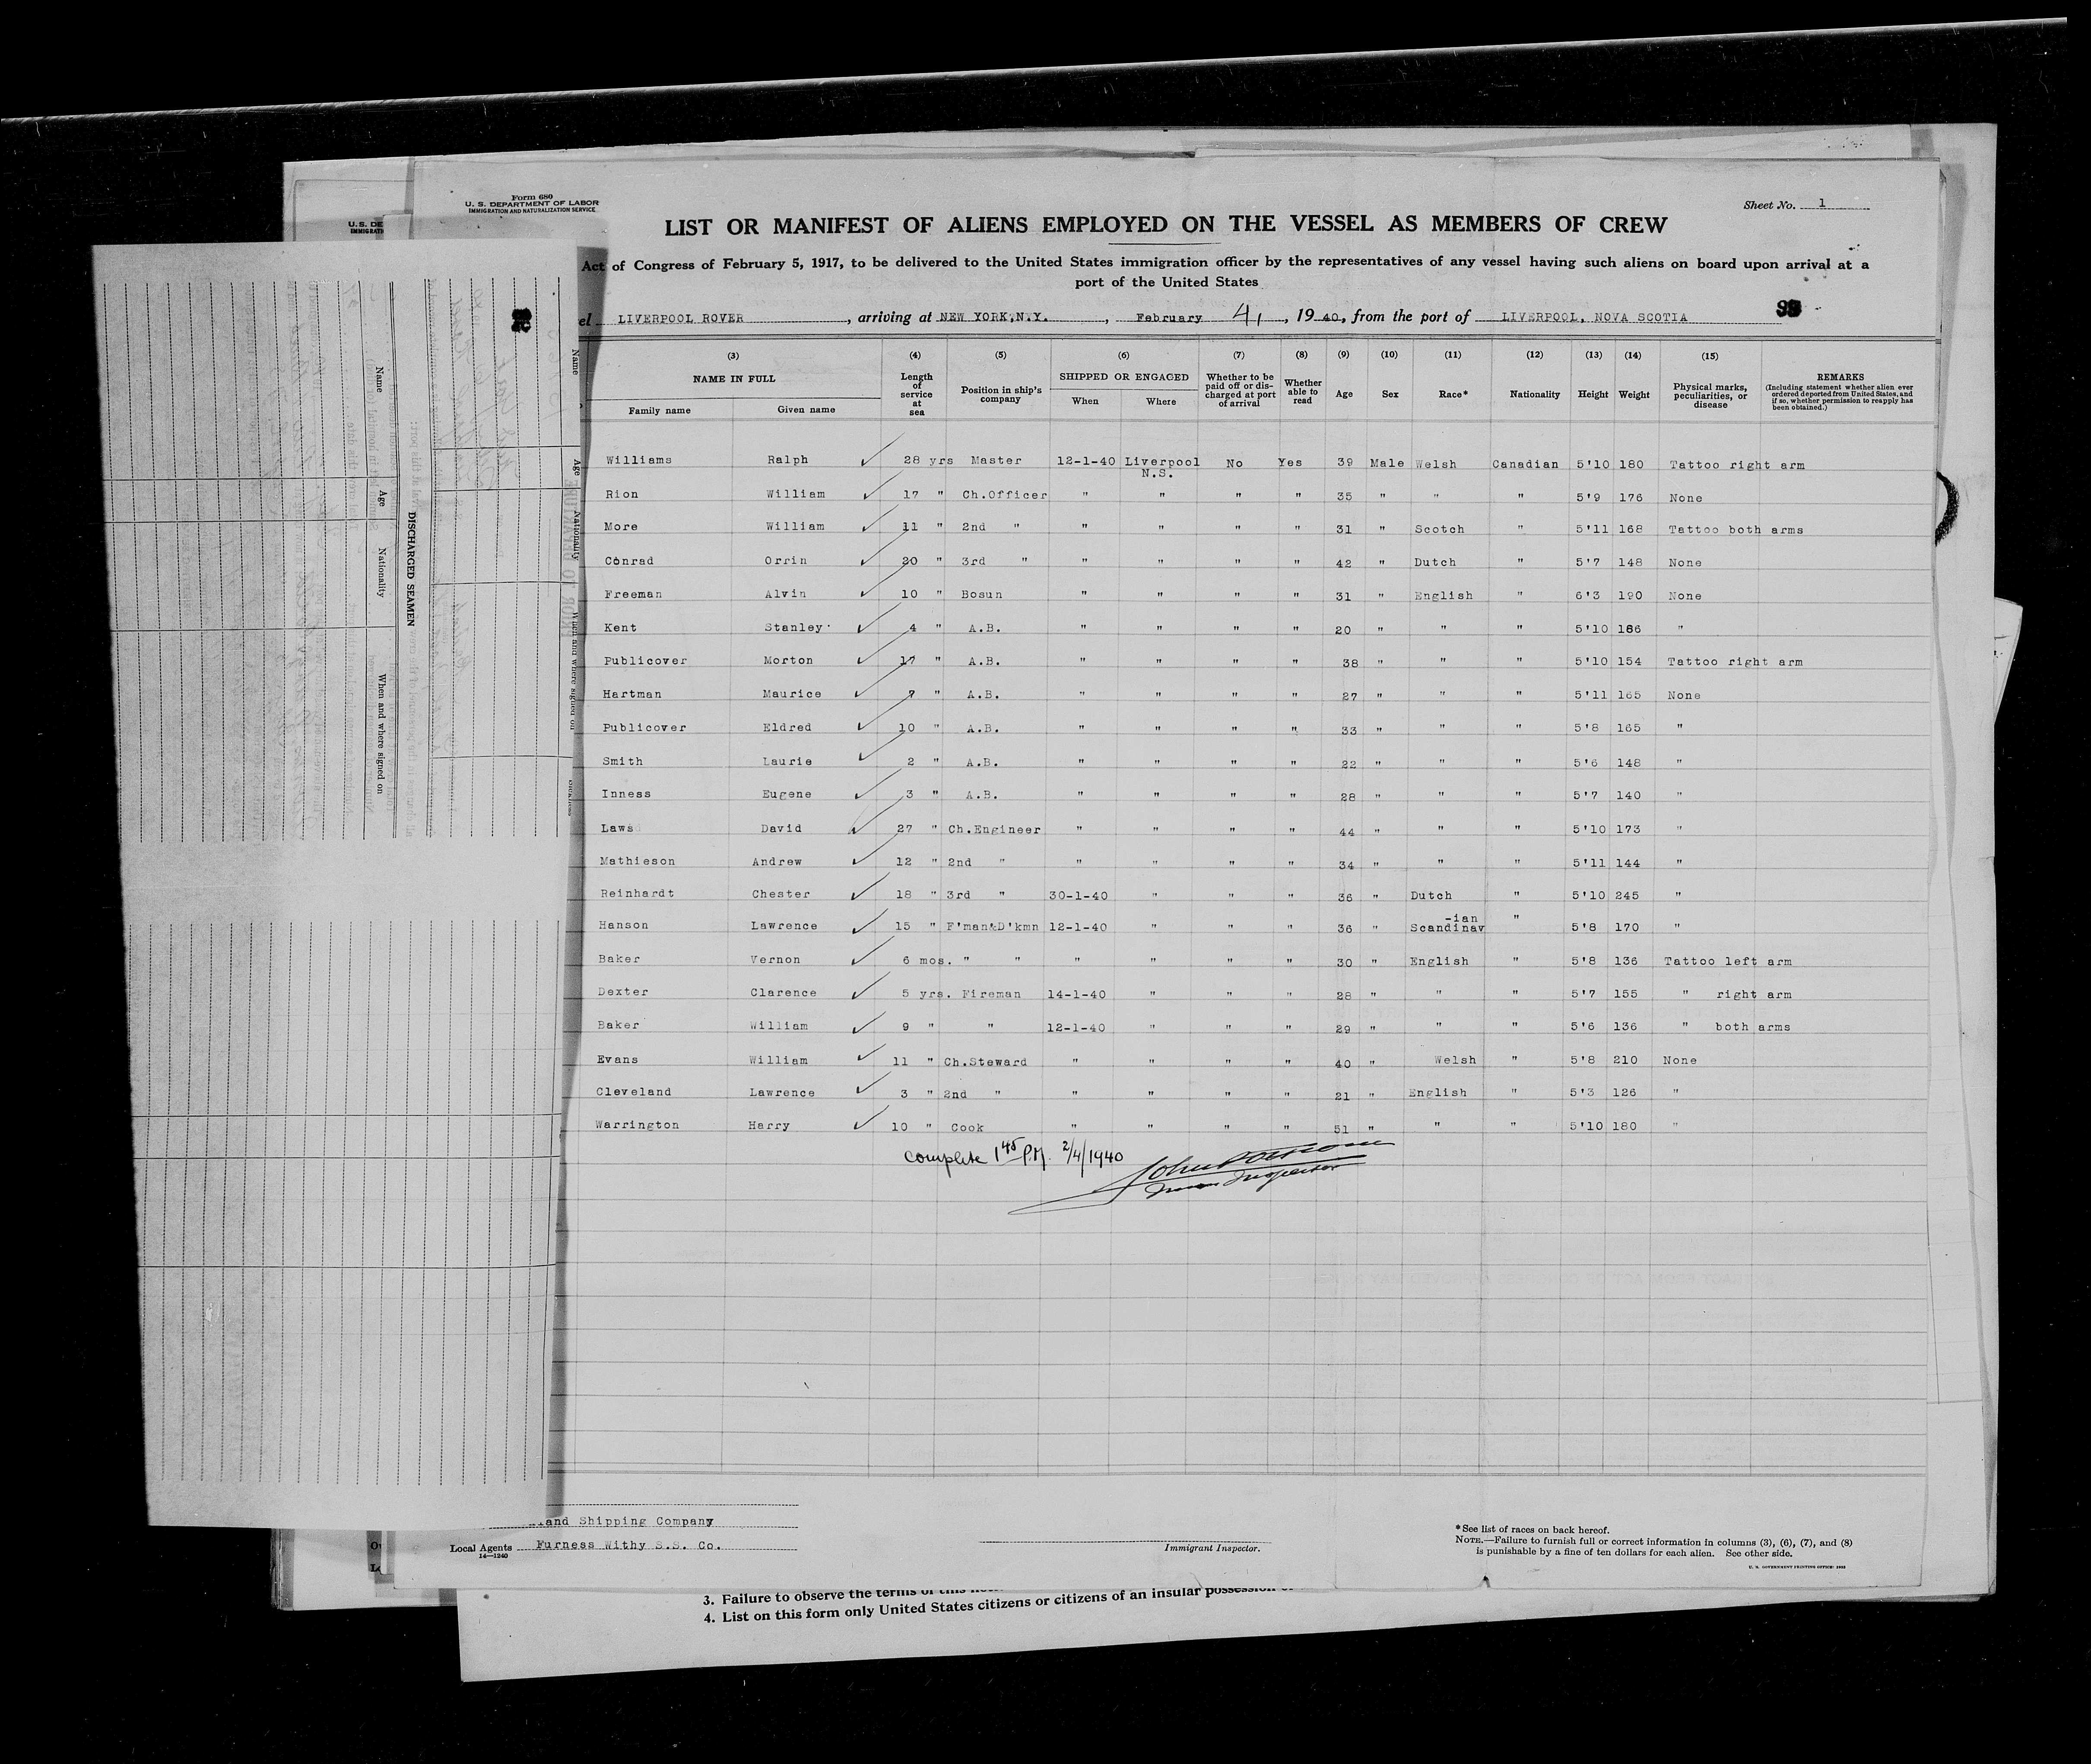 Form 680
U. S. DEPARTMENT OF LABOR
IMMIGRATION AND NATURALIZATION SERVICE
Sheet No. 1
LIST OR MANIFEST OF ALIENS EMPLOYED ON THE VESSEL AS MEMBERS OF CREW
Act of Congress of February 5, 1917, to be delivered to the United States immigration officer by the representatives of any vessel having such aliens on board upon arrival at a
port of the United States
el LIVERPOOL ROVER, arriving at NEW YORK,N.Y., February 4, 1940, from the port of LIVERPOOL, NOVA SCOTIA
(3) (4) (5) (6) (7) (8) (9) (10) (11) (12) (13) (14) (15)
NAME IN FULL
Family name Given name
Length of service at sea
Position in ship's company
SHIPPED OR ENGAGED
When Where
Whether to be paid off or discharged at port of arrival
Whether able to read
Age Sex Race* Nationality Height Weight
Physical marks, peculiarities, or disease
REMARKS
(Including statement whether alien ever ordered deported from United States, and if so, whether permission to reapply has been obtained.)
Williams Ralph 28 yrs Master 12-1-40 Liverpool N.S. No Yes 39 Male Welsh Canadian 5'10 180 Tattoo right arm
Rion William 17 " Ch.Officer " " " " 35 " " " 5'9 176 None
More William 11 " 2nd " " " " " 31 " Scotch " 5'11 168 Tattoo both arms
Conrad Orrin 20 " 3rd " " " " " 42 " Dutch " 5'7 148 None
Freeman Alvin 10 " Bosun " " " " 31 " English " 6'3 190 None
Kent Stanley 4 " A.B. " " " " 20 " " " 5'10 166 "
Publicover Morton 17 " A.B. " " " " 38 " " " 5'10 154 Tattoo right arm
Hartman Maurice 7 " A.B. " " " " 27 " " " 5'11 165 None
Publicover Eldred 10 " A.B. " " " " 33 " " " 5'8 165 "
Smith Laurie 2 " A.B. " " " " 22 " " " 5'6 148 "
Inness Eugene 3 " A.B. " " " " 28 " " " 5'7 140 "
Laws David 27 " Ch.Engineer " " " " 44 " " " 5'10 173 "
Mathieson Andrew 12 " 2nd " " " " " 34 " " " 5'11 144 "
Reinhardt Chester 18 " 3rd " 30-1-40 " " " 36 " Dutch " 5'10 245 "
Hanson Lawrence 15 " F'man&D'kmn 12-1-40 " " " 36 " Scandinav-ian " 5'8 170 "
Baker Vernon 6 mos. " " " " " " 30 " English " 5'8 136 Tattoo left arm
Dexter Clarence 5 yrs. Fireman 14-1-40 " " " 28 " " " 5'7 155 " right arm
Baker William 9 " " 12-1-40 " " " 29 " " " 5'6 136 " both arms
Evans William 11 " Ch.Steward " " " " 40 " Welsh " 5'8 210 None
Cleveland Lawrence 3 " 2nd " " " " " 21 " English " 5'3 126 "
Warrington Harry 10 " Cook " " " " 51 " " " 5'10 180 "
Complete 1 45 P.M. 2/4/1940
Inspector
and Shipping Company
Local Agents Furness Withy S.S. Co.
14—1240
Immigrant Inspector.
*See list of races on back hereof.
NOTE.—Failure to furnish full or correct information in columns (3), (6), (7), and (8)
is punishable by a fine of ten dollars for each alien. See other side.
U. S. GOVERNMENT PRINTING OFFICE
3. Failure to observe the terms of this
4. List on this form only United States citizens or citizens of an insular possession
U.S. DE
IMMIGRATI
Name
Age
Nationality
When and where signed on
DISCHARGED SEAMEN
Name
Age
Nationality
When and where signed on